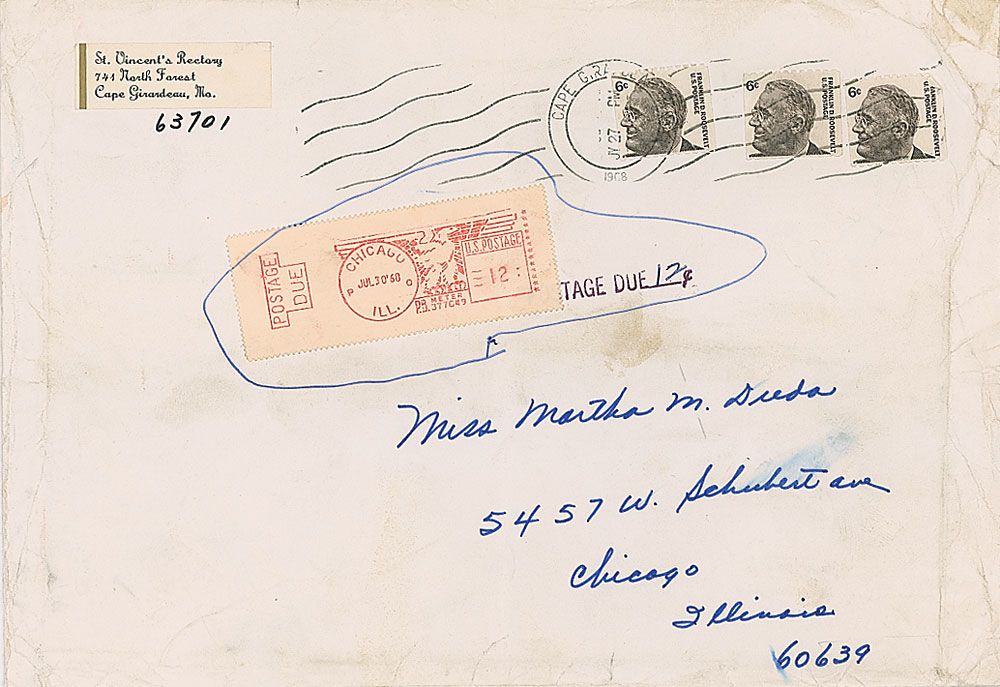 St. Vincent's Rectory
741 North Forest
Cape Girardeau, Mo.
63701
CAPE GIRARDEAU
PM
JY 27
1968
6c
FRANKLIN D. ROOSEVELT
U.S. POSTAGE
6c
FRANKLIN D. ROOSEVELT
U.S. POSTAGE
6c
FRANKLIN D. ROOSEVELT
U.S. POSTAGE
POSTAGE DUE
CHICAGO
JUL 30 '68
P O
ILL.
U.S. POSTAGE
12
METER
TAGE DUE 12¢
Miss Martha M. Duda
5457 W. Schubert ave
Chicago
Illinois
60639